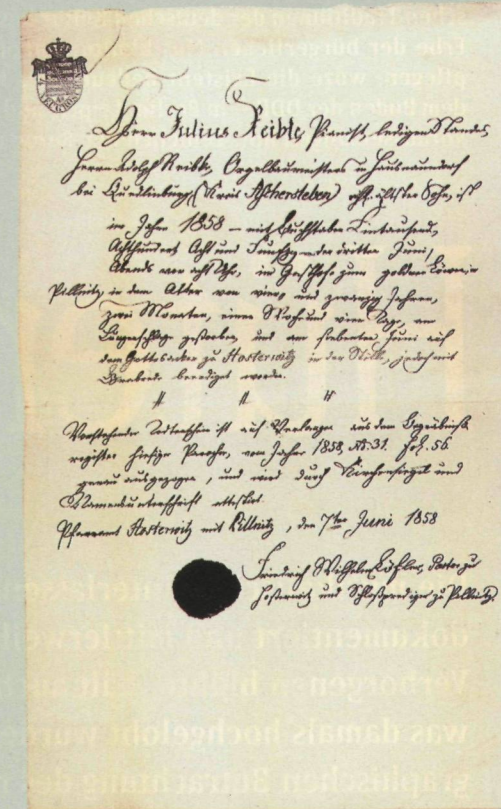 Herr Julius Reubke, Pianist, ledigen Standes,
Herrn Adolph Reubke, Orgelbaumeisters in Hausneundorf
bei Quedlinburg, (Kreis Aschersleben) ehel. ältester Sohn, ist
im Jahre 1858 – mit Buchstaben Eintausend,
Achthundert Acht und Funfzig – den dritten Juni,
Abends vor acht Uhr, im Gasthofe zum goldnen Löwen in
Pillnitz, in dem Alter von vier und zwanzig Jahren,
zwei Monaten, einer Woche und vier Tage, am
gestorben, und am siebenten Juni auf
dem Gottesacker zu Hosterwitz in der Stille, jedoch mit
Grabrede beerdigt worden.
Vorstehender Todtenschein ist auf Verlangen aus dem Begräbniß-
register hiesiger Parochie, vom Jahre 1858, No. 31. Fol. 56
genau ausgezogen, und wird durch Kirchensiegel und
Namensunterschrift attestirt.
Pfarramt Hosterwitz mit Pillnitz, den 7ten Juni 1858
Friedrich Wilhelm Pastor zu
Hosterwitz und Schloßprediger zu Pillnitz